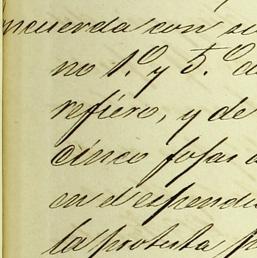 ncuerda con su
no 1.º y 5.º d
refiero, y de
cinco fojas
en el espendi
la protesta p